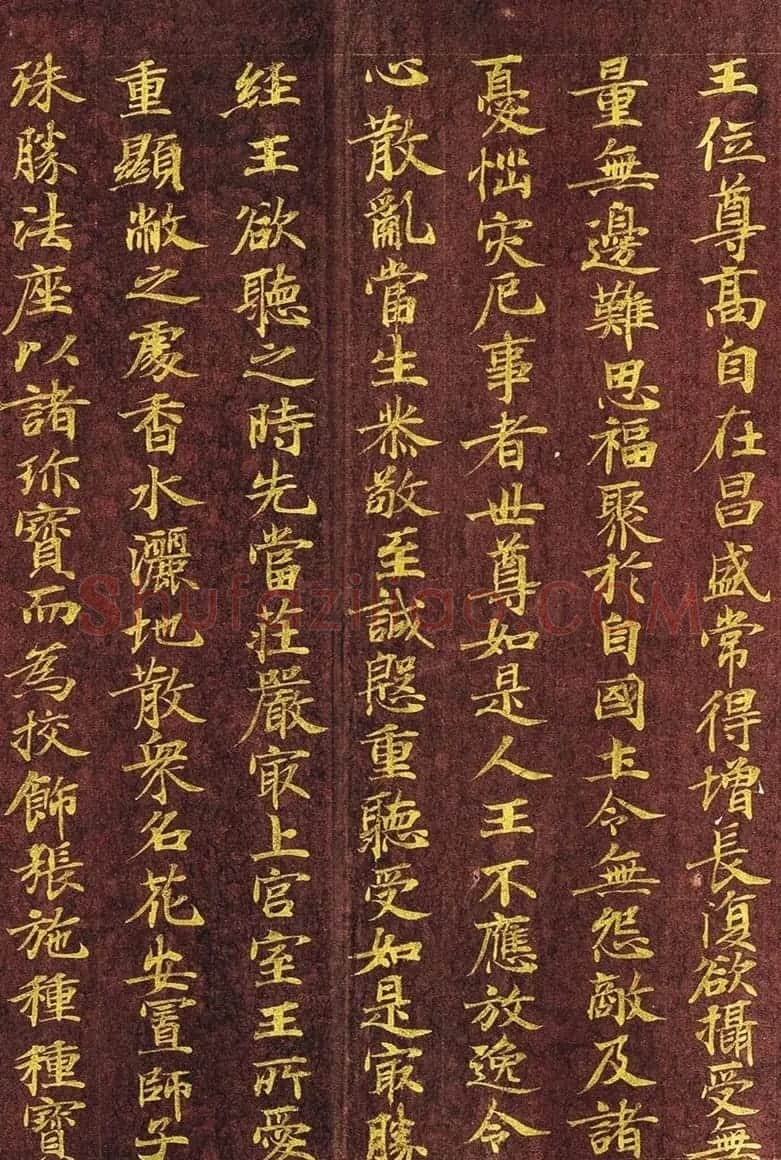 王位尊高自在昌盛常得增長復欲攝受無
量無邊難思福聚於自國土令無怨敵及諸
憂惱灾厄事者世尊如是人王不應放逸令
心散亂當生恭敬至誠慇重聽受如是冣勝
經王欲聽之時先當莊嚴冣上宮室王所愛
重顯敞之處香水灑地散衆名花安置師子
殊勝法座以諸珎寶而為挍飾張施種種寶
Shufazihao.COM